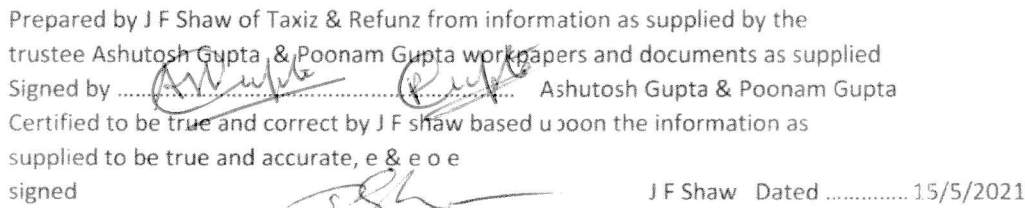 Prepared by J F Shaw of Taxiz & Refunz from information as supplied by the
trustee Ashutosh Gupta & Poonam Gupta workpapers and documents as supplied
Signed by ........................................................ Ashutosh Gupta & Poonam Gupta
Certified to be true and correct by J F shaw based upoon the information as
supplied to be true and accurate, e & e o e
signed J F Shaw Dated .............. 15/5/2021